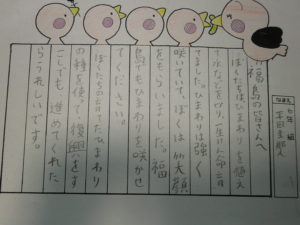 福島の皆さんへ
ぼくたちは、ひまわりを植え
て水などをやり、一生けん命育
てました。ひまわりは強く
咲いていて、ぼくは笑顔
をもらいました。福
島もひまわりを咲かせ
てください。
ぼくたちの育てたひまわり
の種を使って、復興をす
こしでも進めてくれた
らうれしいです。
なまえ